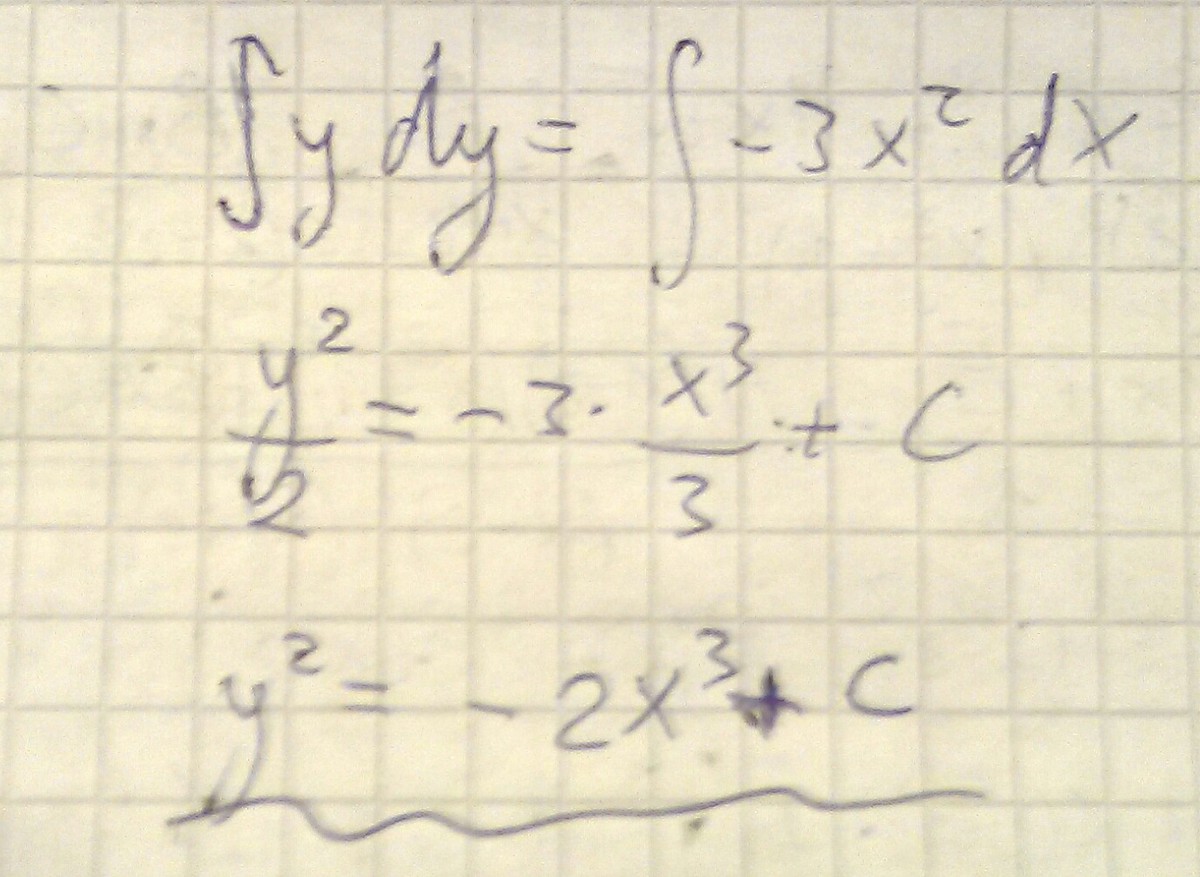 ∫ y dy = ∫ -3x² dx
y²/2 = -3 · x³/3 + C
y² = -2x³ + C